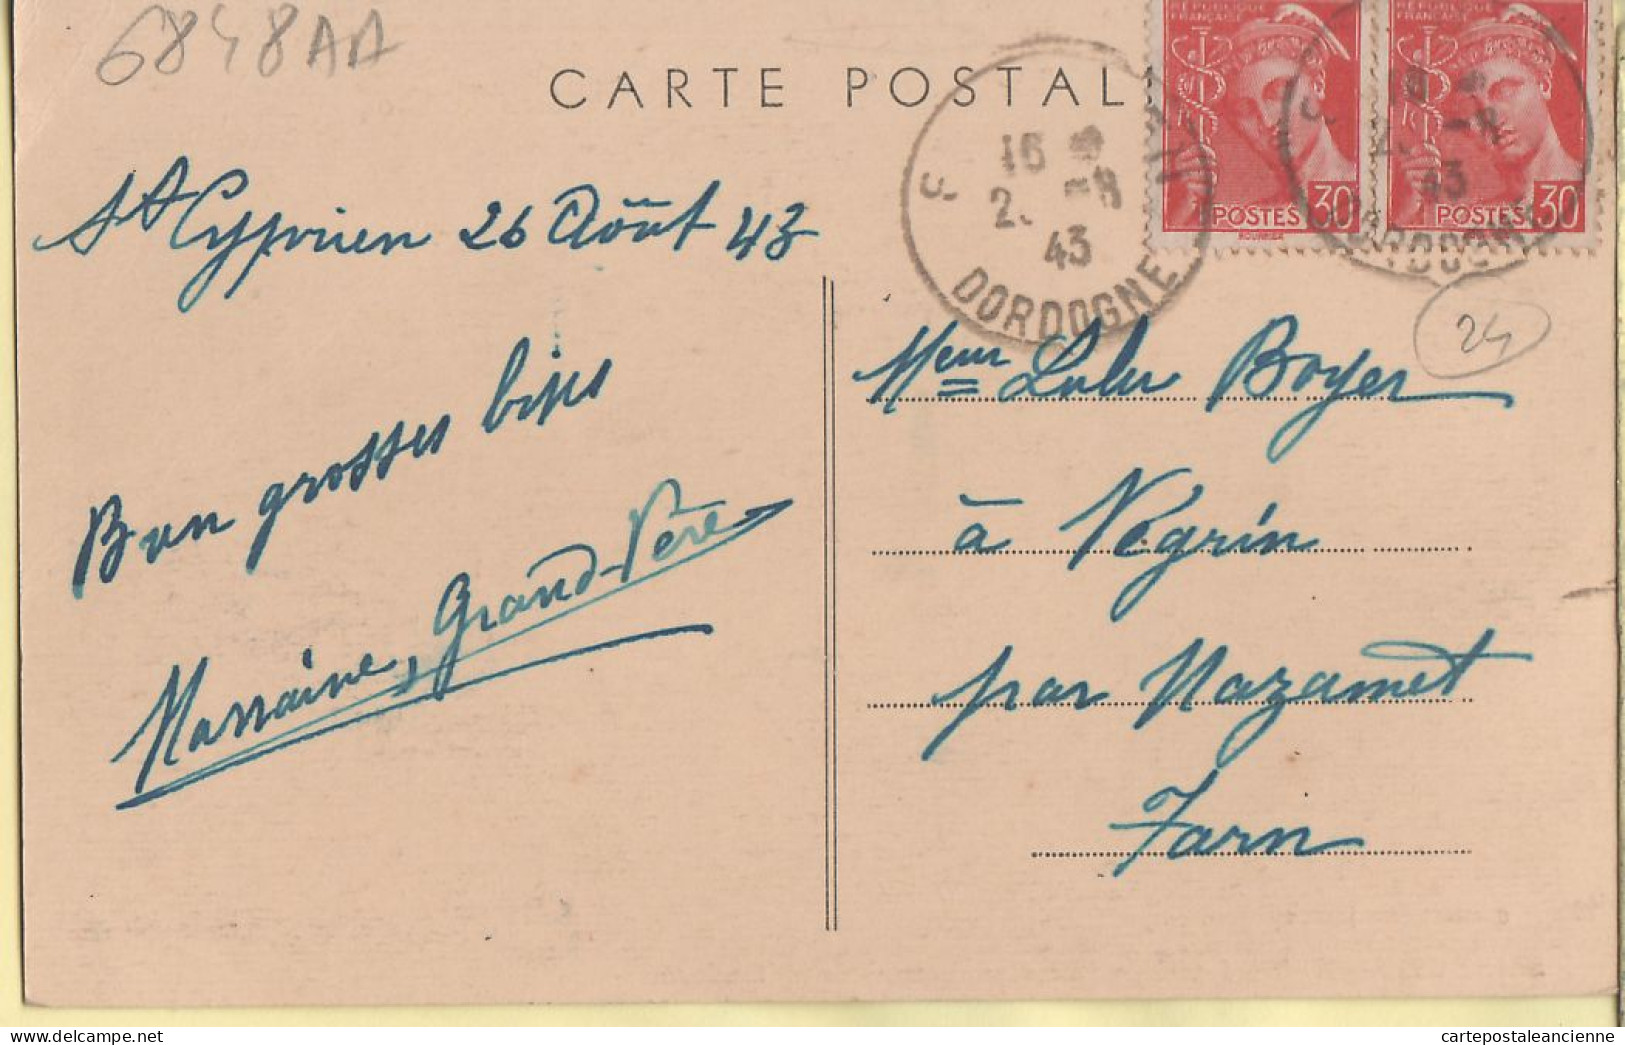 6848AA
CARTE POSTALE
RÉPUBLIQUE FRANÇAISE
POSTES 30
RÉPUBLIQUE FRANÇAISE
POSTES 30
16
2. -8
43
DORDOGNE
16
2. -8
43
DORDOGNE
St Cyprien 26 Août 43
24
Bon grosses bises
Marraine, Grand-Père
Meur Lulu Boyer
à Négrin
par Mazamet
Tarn
cartepostaleancienne